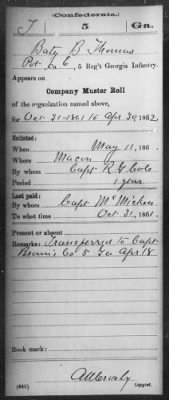 (Confederate.)
T 5 Ga.
Baty B Thomas
Pvt, Co. E, 5 Reg't Georgia Infantry.
Appears on
Company Muster Roll
of the organization named above,
for Oct 31-1861 to Apr 30, 1862.
Enlisted:
When May 11, 186
Where Macon
By whom Capt
Period 1 year
Last paid:
By whom Capt McMichen
To what time Oct 31, 1861.
Present or absent
Remarks: Transferred to Capt
Co 5 Ga Apr 18
Book mark:
(642) Copyist.